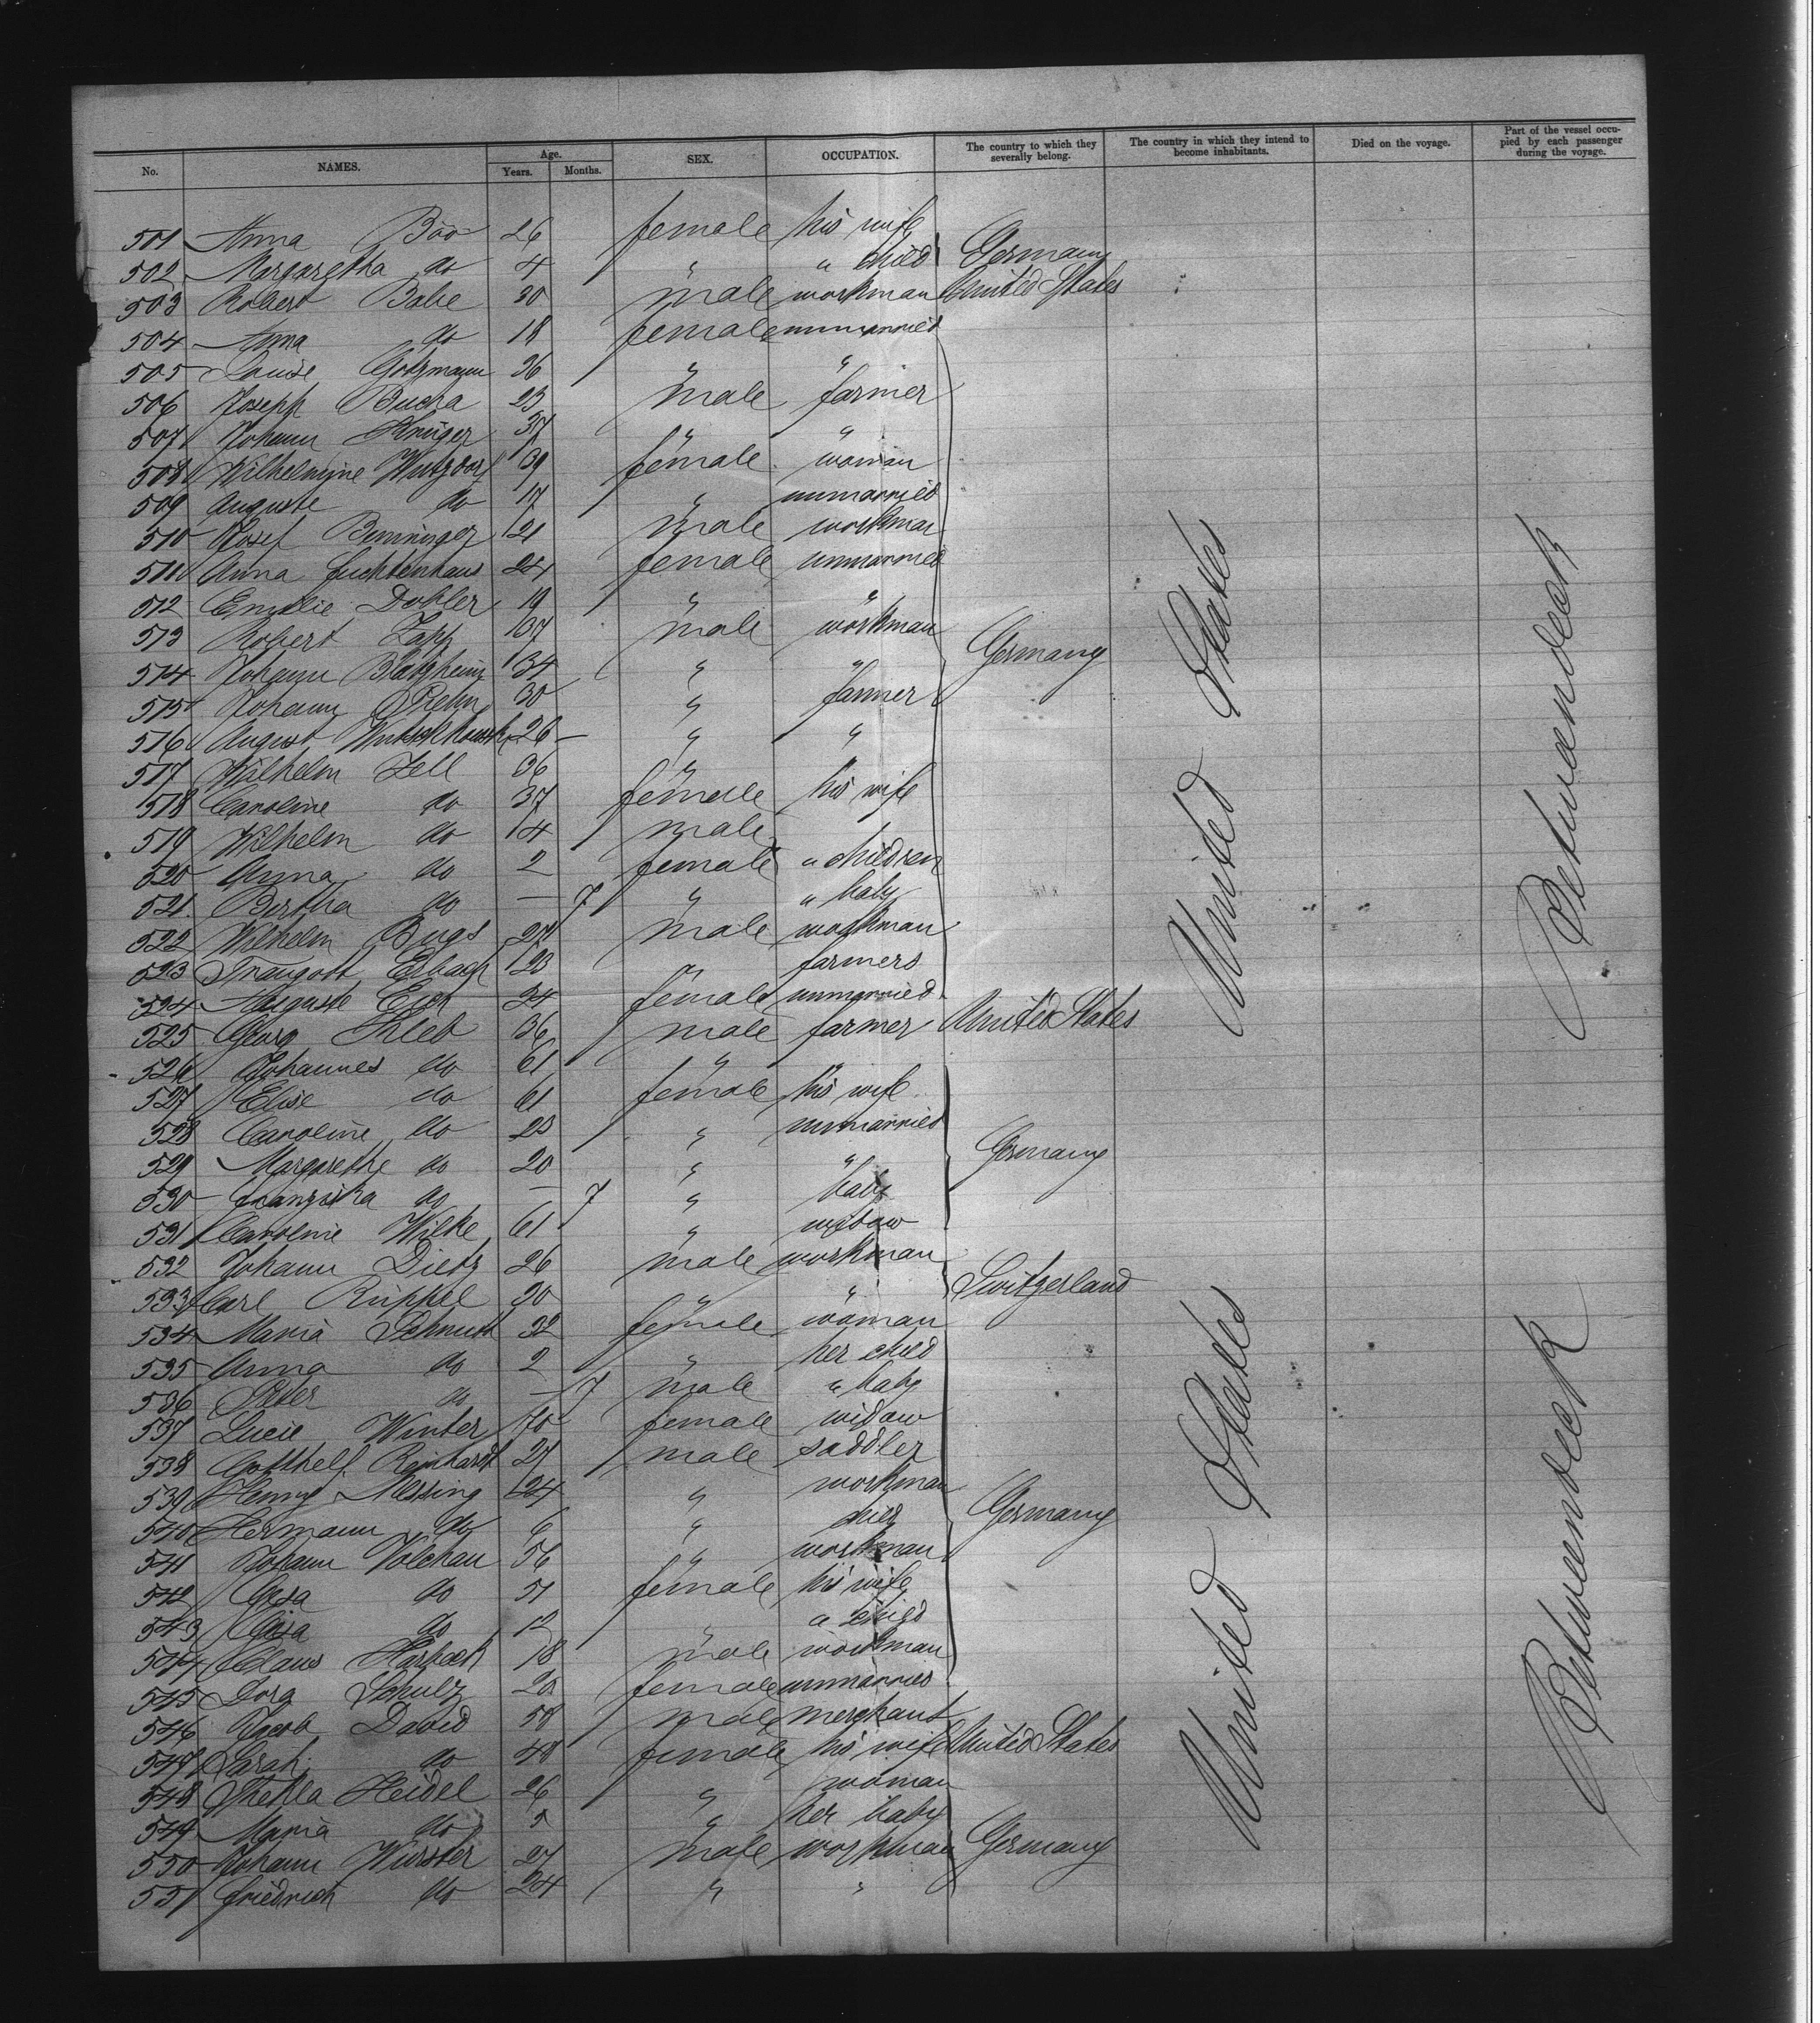 No. NAMES. Age. Years. Months. SEX. OCCUPATION. The country to which they severally belong. The country in which they intend to become inhabitants. Died on the voyage. Part of the vessel occupied by each passenger during the voyage.
501 Anna 26 female his wife
502 Margaretha do 4 " " child Germany
503 Robert Babe 30 male workman United States
504 Anna do 18 female unmarried
505 Louise Gotzmann 36 " "
506 Joseph Bucha 23 male farmer
507 Johann Krüger 37 " "
508 Wilhelmine 39 female woman
509 Auguste do 17 " unmarried
510 Josef Benninger 21 male workman
511 Anna Luchtenhaus 24 female unmarried
512 Emilie Dobler 19 " "
513 Robert Zapp 37 male workman Germany
514 Johann Blatzheim 34 " "
515 Johann Prehn 30 " farmer
516 August 26 — " "
517 Wilhelm Zell 36 " "
518 Caroline do 37 female his wife
519 Wilhelm do 4 male
520 Anna do 2 female " children
521 Bertha do — 7 " " baby
522 Wilhelm Bugs 27 male workman
523 Traugott Erbach 23 " farmers
524 Auguste Eich 24 female unmarried
525 Georg 36 male farmer United States
526 Johannes do 61 " "
527 Elise do 61 female his wife
528 Caroline do 23 " unmarried
529 Margarethe do 20 " " Germany
530 Franziska do — 7 " baby
531 Caroline Wilke 61 " widow
532 Johann Dietz 26 male workman
533 Carl Rüppel 20 " " Switzerland
534 Maria Schmidt 32 female woman
535 Anna do 2 " her child
536 Peter do — 7 male " baby
537 Lucie Winter 70 female widow
538 Gotthelf Reinhardt 27 male saddler
539 Henry Messing 24 " workman
540 Hermann do 6 " child Germany
541 Johann Völchau 56 " workman
542 Gesa do 51 female his wife
543 do 12 " " child
544 Claus 18 male workman
545 Dora Schulz 20 female unmarried
546 Jacob David 58 male merchant
547 Sarah do 48 female his wife United States
548 Thekla Heidel 26 " woman
549 Maria do 5 " her baby
550 Johann Wurster 27 male workman Germany
551 Friedrich do 24 " "
United States
United States
Betweendeck
Betweendeck